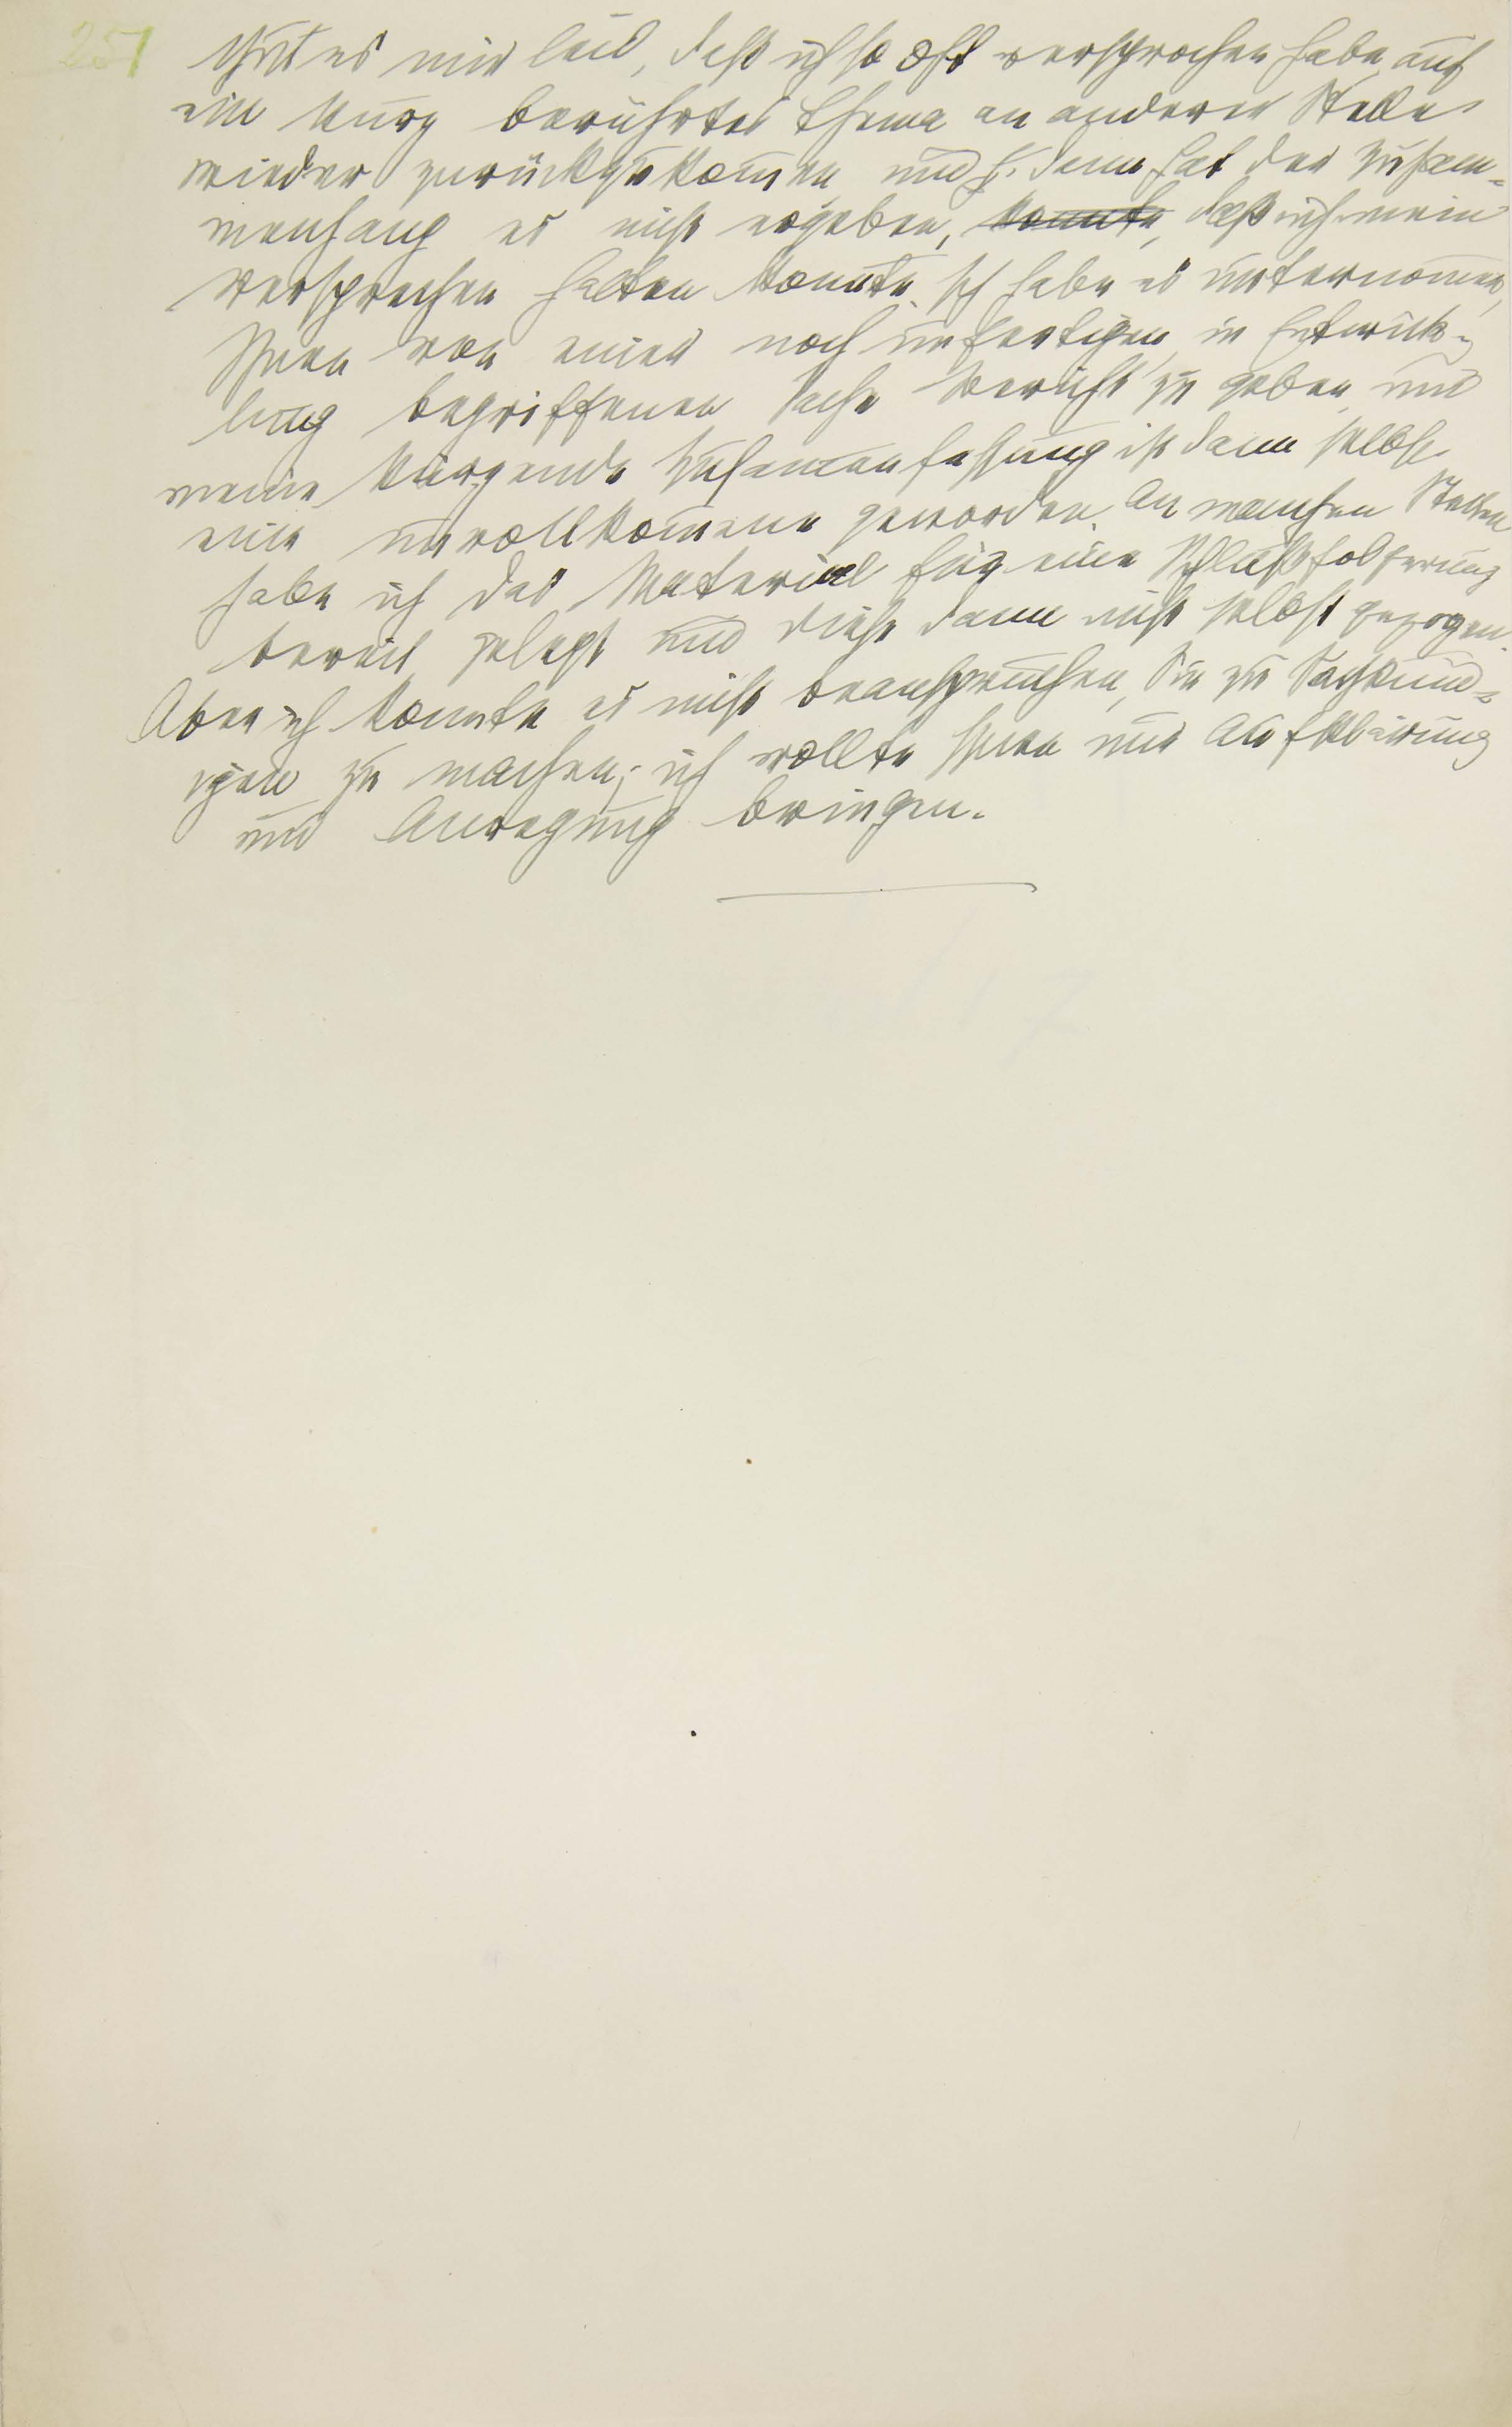 251
thut es mir leid, daß ich so oft versprochen habe, auf
ein kurz berührtes Thema an anderer Stelle
wieder zurückzukommen, und dann hat der Zusam-
menhang es nicht ergeben, konnte, daß ich mein
Versprechen halten konnte. Ich habe es unternommen,
Ihnen von einer noch unfertigen, in Entwick-
lung begriffenen Sache Bericht zu geben, und
meine kürzende Zusammenfassung ist dann selbst
eine unvollkommene geworden. An manchen Stellen
habe ich das Material für eine Schlußfolgerung
bereit gelegt und diese dann nicht selbst gezogen.
Aber ich konnte es nicht beanspruchen, Sie zu Sachkund-
igen zu machen; ich wollte Ihnen nur Aufklärung
und Anregung bringen.